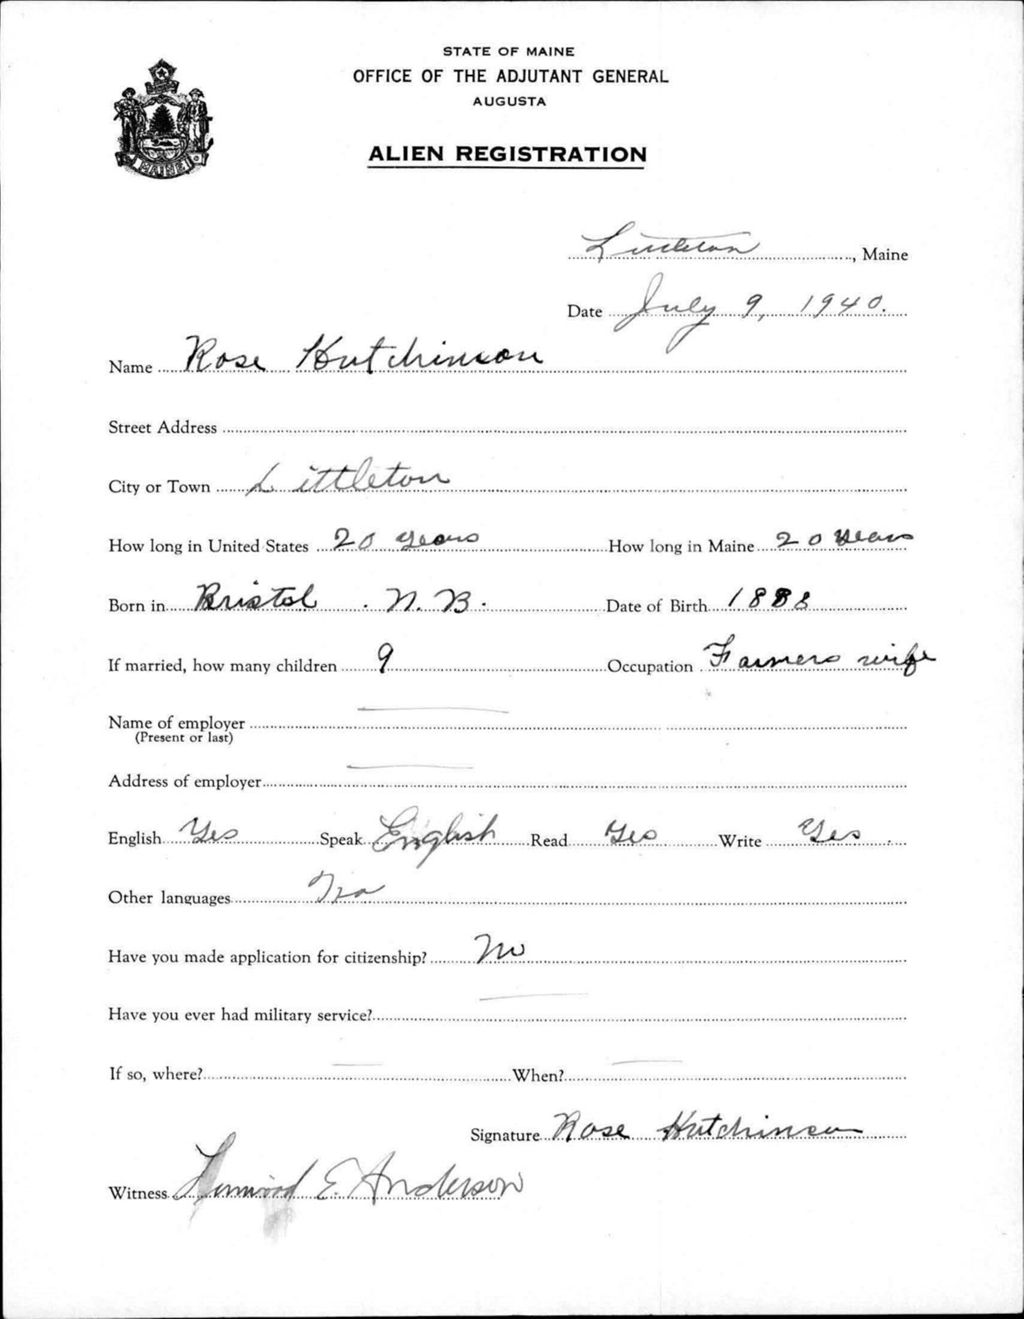 STATE OF MAINE
OFFICE OF THE ADJUTANT GENERAL
AUGUSTA
ALIEN REGISTRATION
MAINE
Littleton, Maine
Date July 9, 1940.
Name Rose Hutchinson
Street Address
City or Town Littleton
How long in United States 20 years How long in Maine 20 years
Born in Bristol. N. B. Date of Birth 1888
If married, how many children 9 Occupation Farmers wife
Name of employer
(Present or last)
Address of employer
English Yes Speak English Read Yes Write Yes
Other languages No
Have you made application for citizenship? No
Have you ever had military service?
If so, where? When?
Signature Rose Hutchinson
Witness E. Anderson